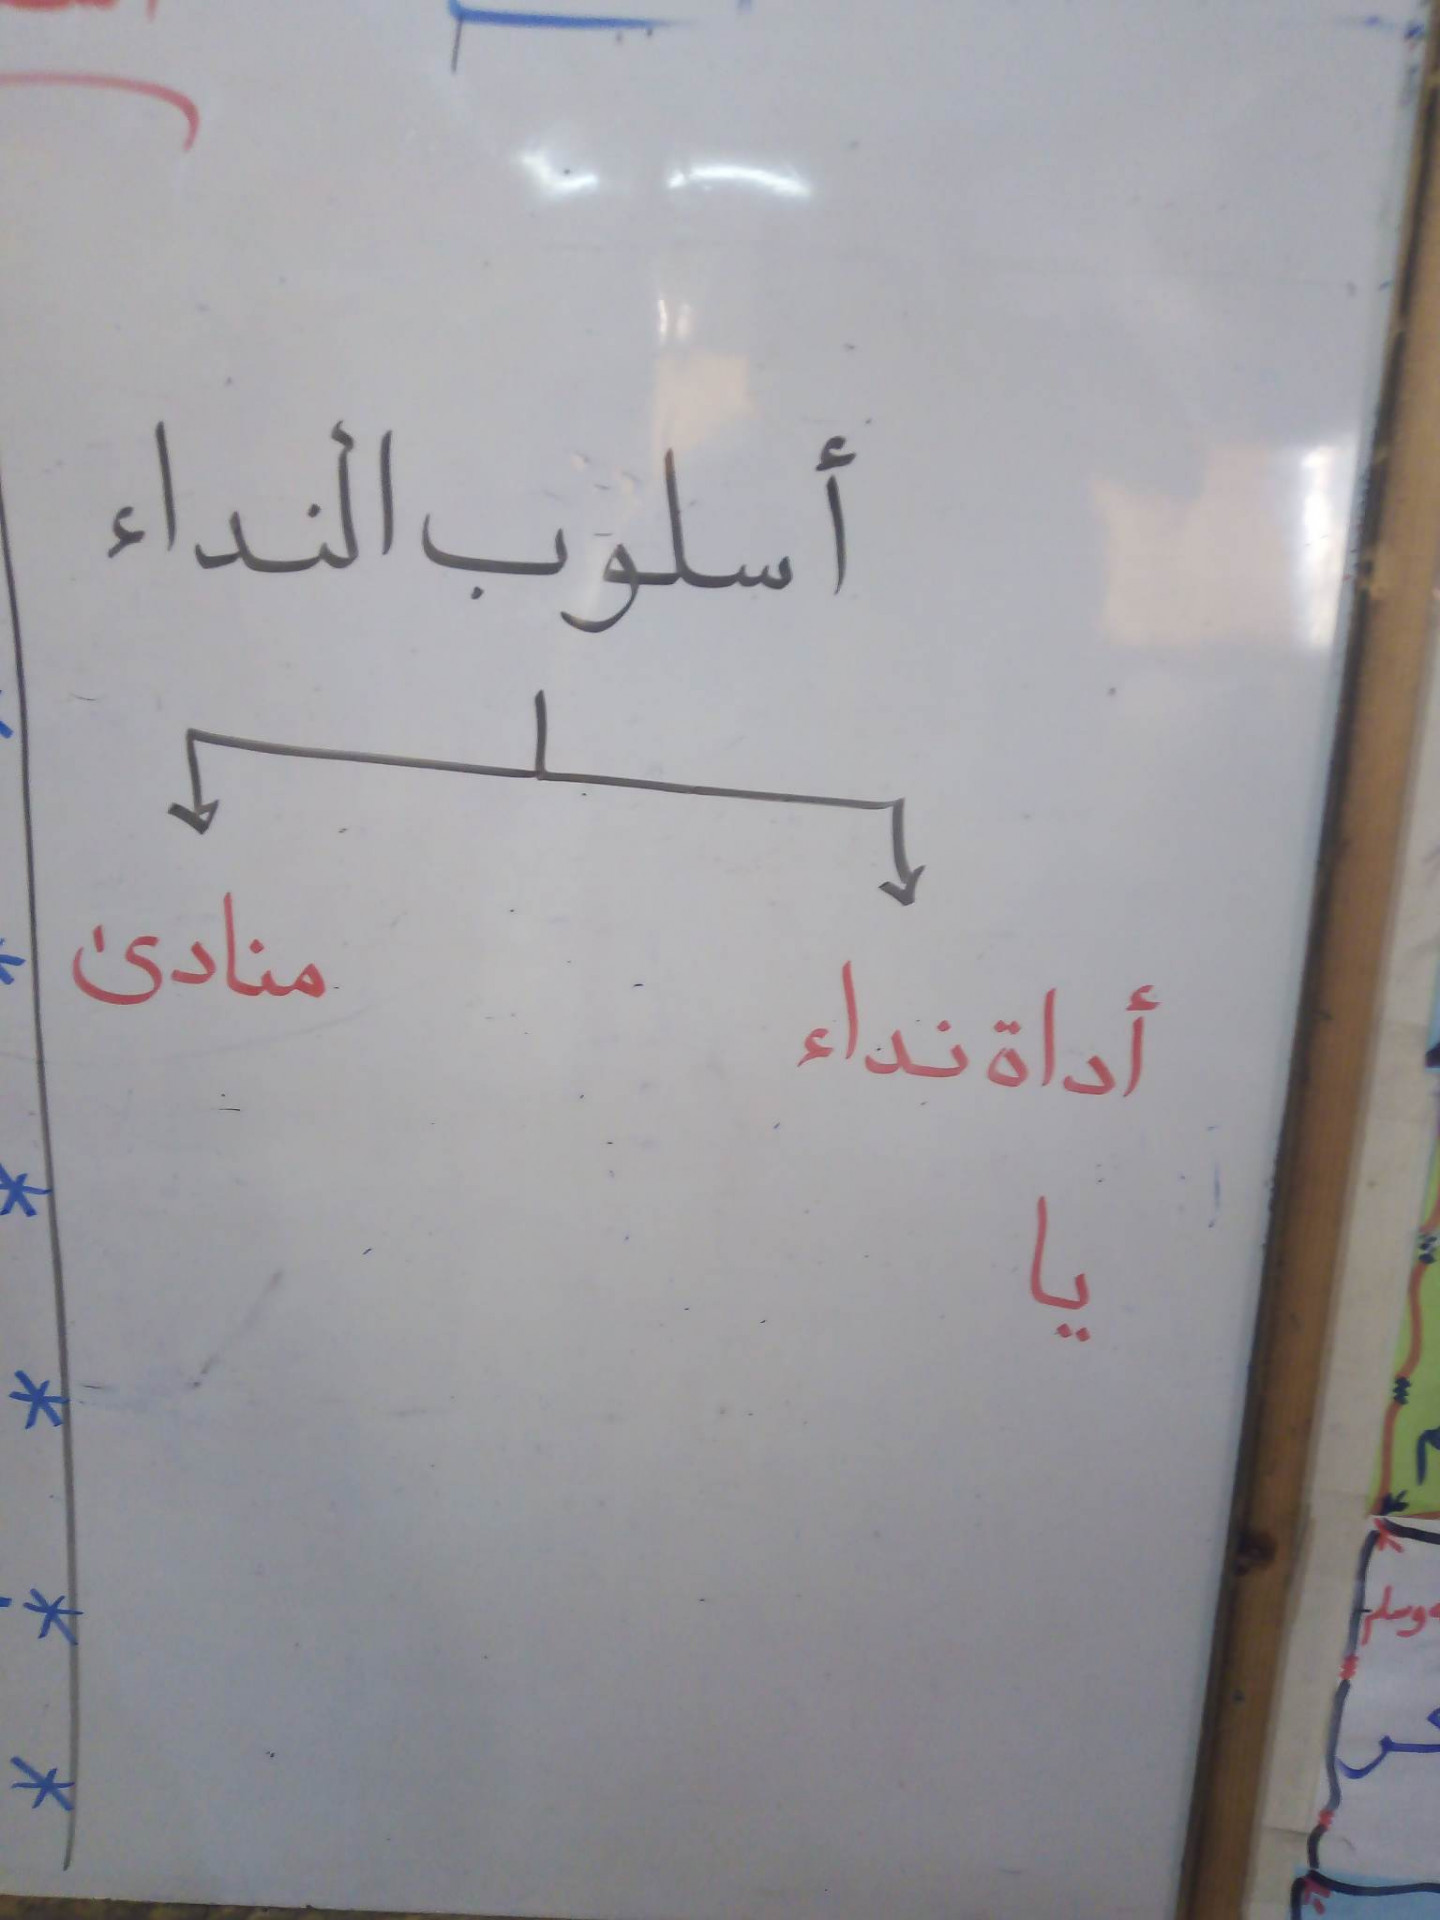 أسلوب النداء
أداة نداء
منادى
يا
وسلم